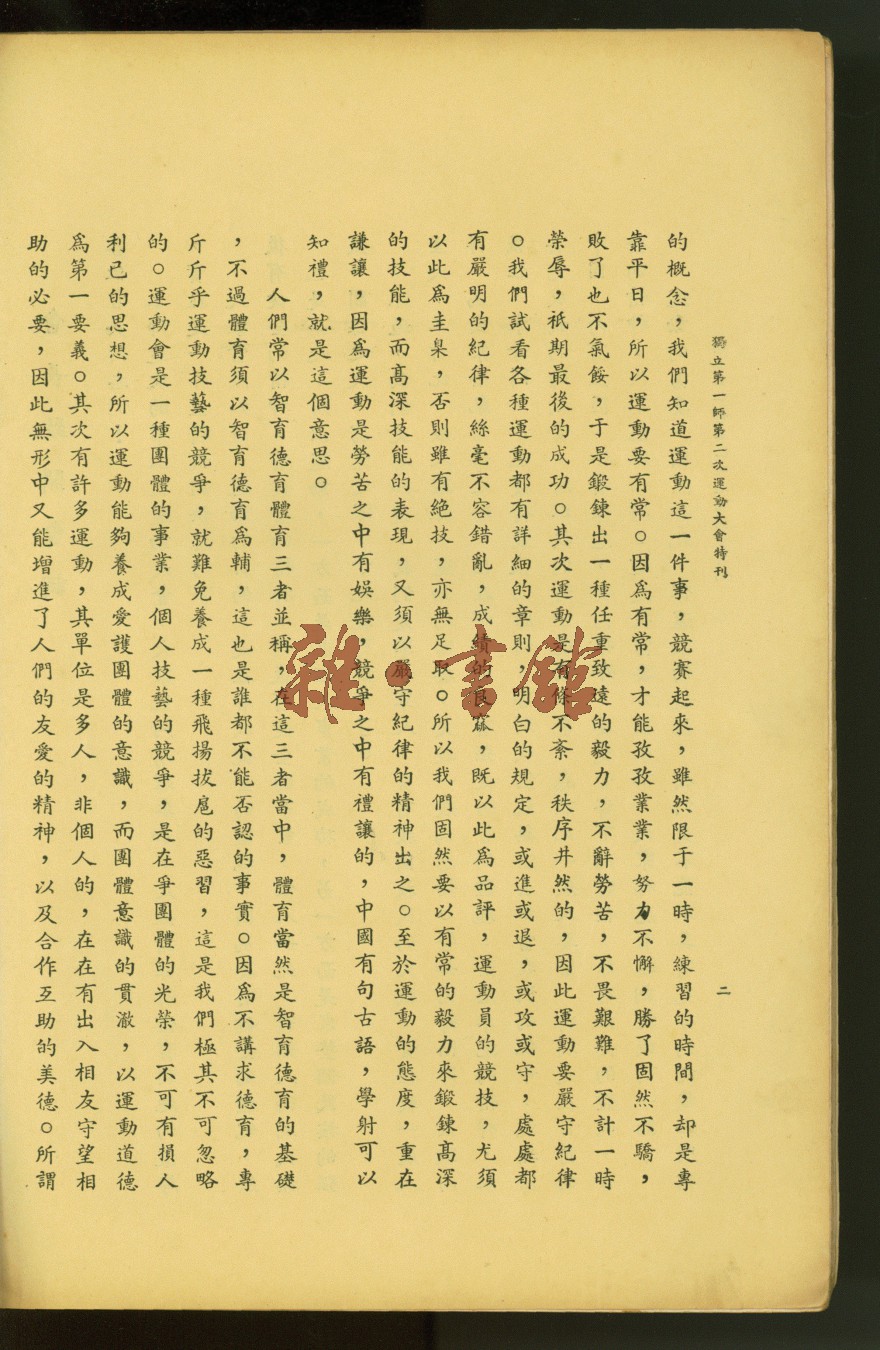 獨立第一師第二次運動大會特刊
二
的概念，我們知道運動這一件事，競賽起來，雖然限于一時，練習的時間，却是專
靠平日，所以運動要有常。因爲有常，才能孜孜業業，努力不懈，勝了固然不驕，
敗了也不氣餒，于是鍛鍊出一種任重致遠的毅力，不辭勞苦，不畏艱難，不計一時
榮辱，祇期最後的成功。其次運動是有條不紊，秩序井然的，因此運動要嚴守紀律
。我們試看各種運動都有詳細的章則，明白的規定，或進或退，或攻或守，處處都
有嚴明的紀律，絲毫不容錯亂，成績的良窳，既以此爲品評，運動員的競技，尤須
以此爲圭臬，否則雖有絕技，亦無足取。所以我們固然要以有常的毅力來鍛鍊高深
的技能，而高深技能的表現，又須以嚴守紀律的精神出之。至於運動的態度，重在
謙讓，因爲運動是勞苦之中有娛樂，競爭之中有禮讓的，中國有句古語，學射可以
知禮，就是這個意思。
人們常以智育德育體育三者並稱，在這三者當中，體育當然是智育德育的基礎
，不過體育須以智育德育爲輔，這也是誰都不能否認的事實。因爲不講求德育，專
斤斤乎運動技藝的競爭，就難免養成一種飛揚拔扈的惡習，這是我們極其不可忽略
的。運動會是一種團體的事業，個人技藝的競爭，是在爭團體的光榮，不可有損人
利已的思想，所以運動能夠養成愛護團體的意識，而團體意識的貫澈，以運動道德
爲第一要義。其次有許多運動，其單位是多人，非個人的，在在有出入相友守望相
助的必要，因此無形中又能增進了人們的友愛的精神，以及合作互助的美德。所謂
雜·書館